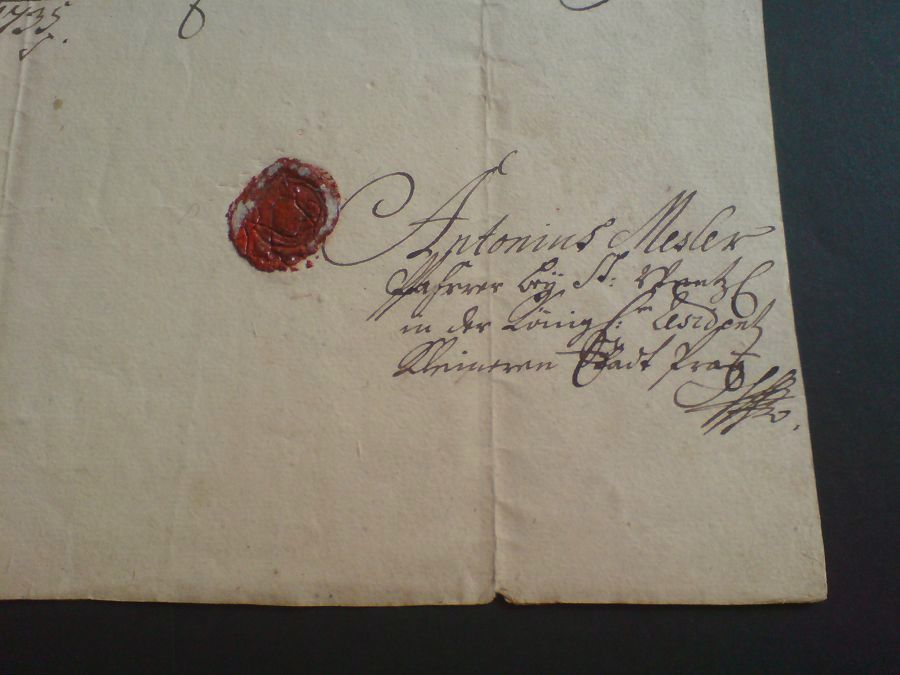 1735
Antonius Mesler
Pfahrrer bey St: Wentzl
in der Königl:n Residentz
Kleineren Stadt Prag